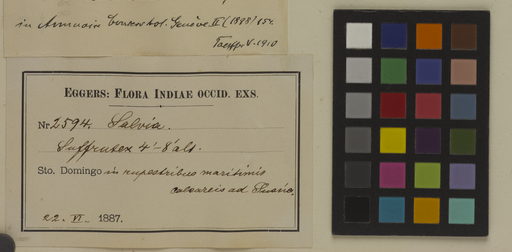 in Annuaire Conserv. bot. Genève II (1898) 152
Toepffer V. 1910
EGGERS: FLORA INDIAE OCCID. EXS.
Nr. 2594. Salvia.
Suffrutex 4'-8' alt.
Sto. Domingo in rupestribus maritimis
calcareis ad
22. VI. 1887.